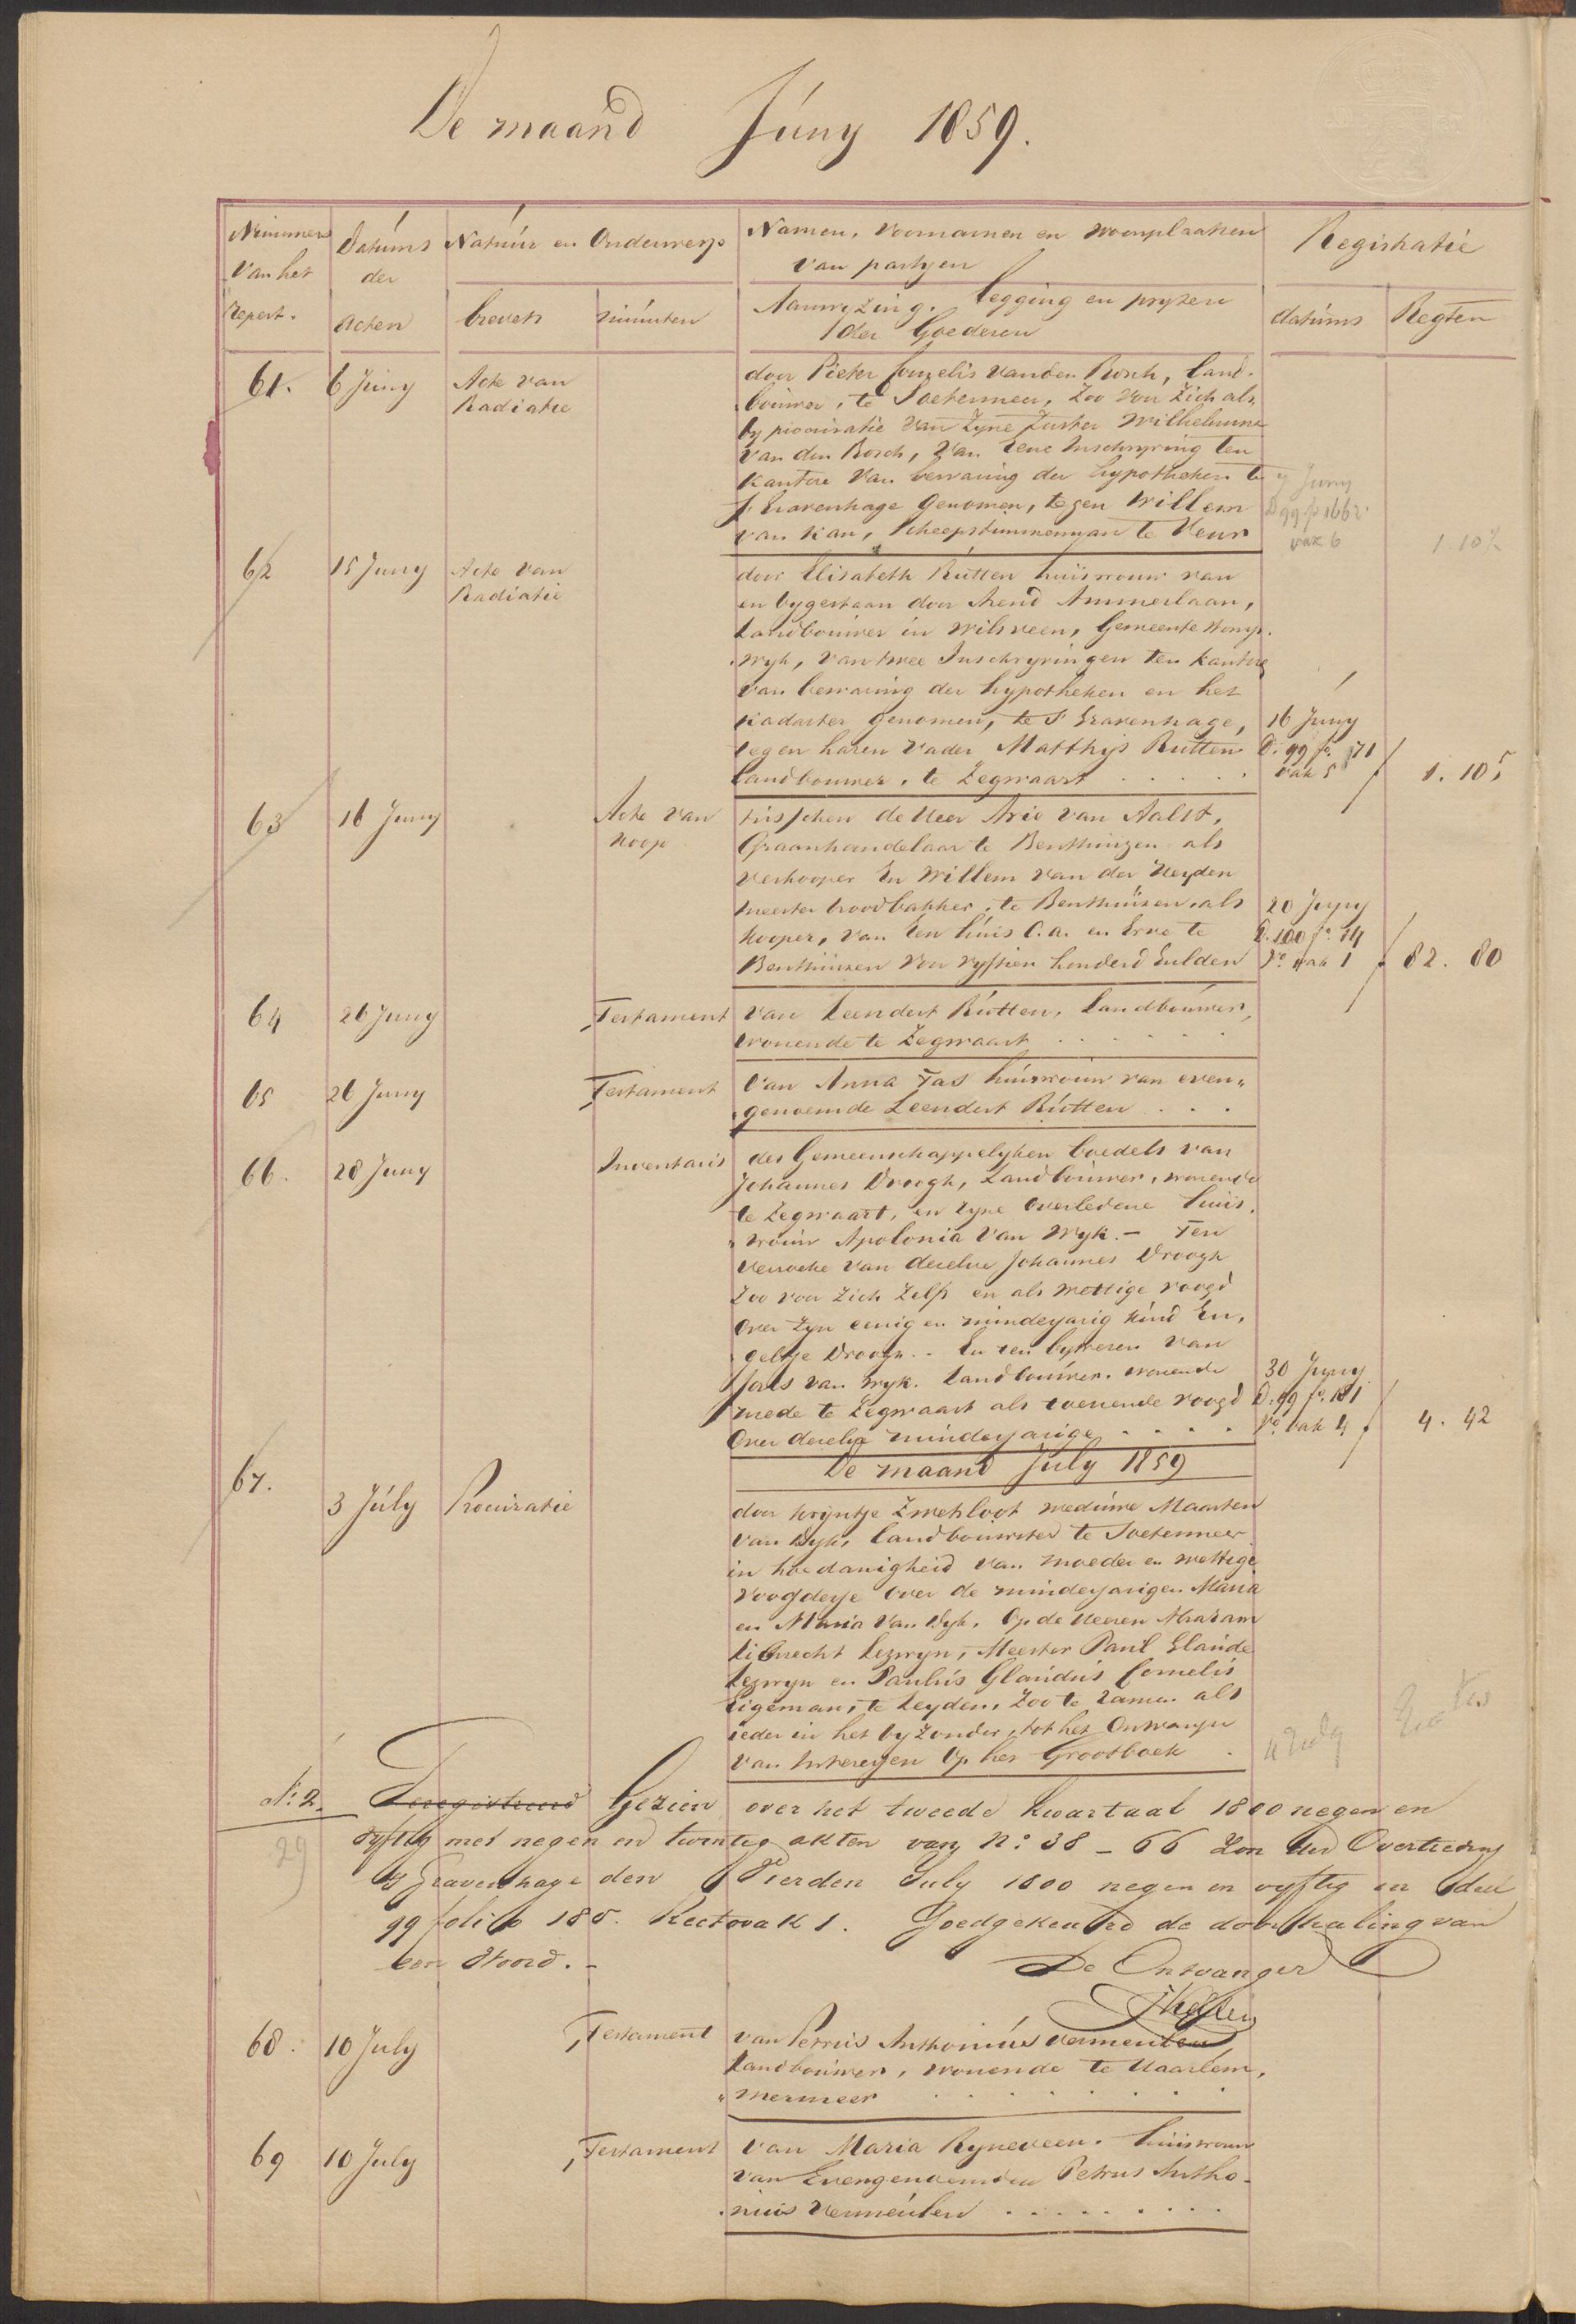 De maand Júny 1859.
Nummers Datúms Natúúr en Onderwerp Namen, Voornamen en woonplaatsen Registratie
van het der van partyen
repert. acten brevets minúten Aanwyzing, legging en pryzen datúms Regten
der Goederen
61. 6 Júny Acte van door Pieter Cornelis van den Bosch, land-
Radiatie bouwer, te Soetermeer, Zoo voor Zich als
by procuratie van Zyne Zuster Wilhelmina
van den Bosch, van eene Inschryving ten
kantore van bewaring der hypotheken te 7 Juny
s Gravenhage genomen, tegen Willem D 99 fo 166 vo
van Kan, Scheepstimmerman te Veur vak 6 1.10½
62 15 Juny Acte van door Elisabeth Rútten húisvrouw van
Radiatie en bygestaan door Arend Ammerlaan,
Landbouwer in Wilsveen, Gemeente Stomp-
wyk, van twee Inschryvingen ten kantore
van bewaring der hypotheken en het
kadaster genomen, te S Gravenhage, 16 Juny
tegen haren vader Matthijs Rutten D. 99 fo. 171
landbouwer, te Zegwaart . . . . . vak 5 1. 10 5
63 16 Juny Acte van tússchen de Heer Arie van Aalst,
koop Graanhandelaar te Benthúizen als
verkooper En Willem van der Heyden
meester broodbakker, te Benthúizen, als 20 Juny
kooper, van Een húis C.a. en Erve te D. 100 fo. 14
Benthúizen voor vyftien honderd Gulden Vo. vak 1 82. 80
64 26 Juny Testament van Leendert Rútten, Landbouwer,
wonende te Zegwaart . . . . . .
65 26 Juny Testament van Anna Tas húisvrouw van even-
genoemde Leendert Rútten . . .
66. 28 Juny Inventaris des Gemeenschappelyken boedels van
Johannes Droogh, Landbouwer, wonende
te Zegwaart, en Zyne overledene húis-
vrouw Apolonia van Wyk. — Ten
verzoeke van dezelve Johannes Droogh
Zoo voor Zich Zelf en als wettige voogd
over Zyn eenig en minderjarig kind En-
geltje Droogh. - En ten bywezen van
Joris van Wyk. Landbouwer, wonende 30 Juny
mede te Zegwaart als toeziende voogd D. 99 fo. 181
over dezelve minderjarige . . . . Vo. vak 4 4. 42
De maand Júly 1859
67. 3 Júly Procúratie door Krijntje Zwetsloot wedúwe Maarten
van Dyk, landbouwster te Soetermeer
in hoedanigheid van moeder en wettige
Voogdesse over de minderjarigen Maria
en Maria van Dyk, Op de Heeren Abraham
Liebrecht Lezwyn, Meester Paul Glaúde
Lezwyn en Paulús Glaúdiús Cornelis
Eigeman, te Leyden, Zoo te Zamen als
ieder in het byzonder, tot het Ontvangen
van Interessen op het Grootboek . 4 July
No. 2. Geregistreerd Gezien over het tweede kwartaal 1800 negen en
29 vyftig met negen en twintig akten van No. 38 - 66 Zon der Overtreding
's Gravenhage den Vierden July 1800 negen en vyftig in deel
99 folio 185. Recto vak 1. Goedgekeurd de doorhaling van
een Woord. - De Ontvanger
68. 10 July Testament van Petrús Anthoniús Vermeulen
Landbouwer, wonende te Haarlem-
mermeer . . . . . . .
69 10 July Testament van Maria Ryneveen. húisvrouw
van Evengenoemden Petrus Antho-
nius Vermeúlen . . . . . . . .